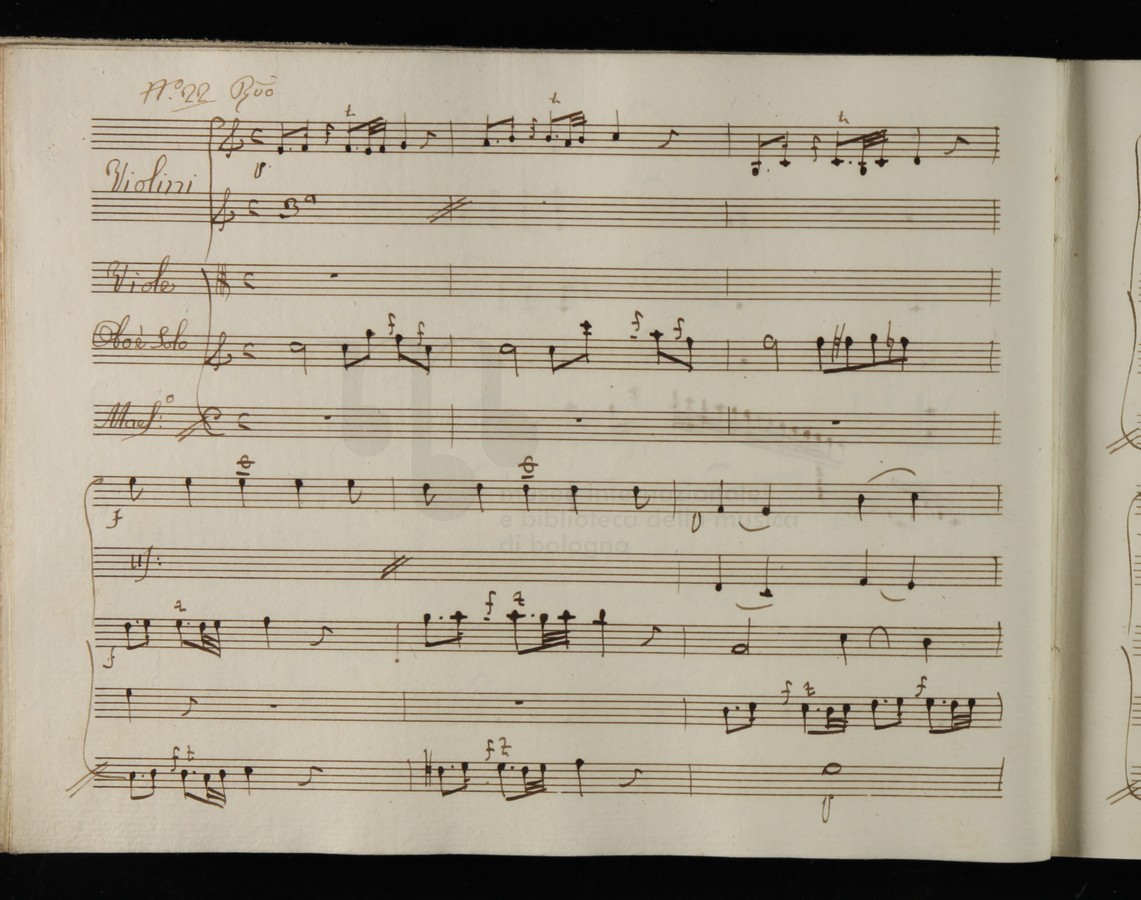 N.º 22 Duo
Violini
Viole
Oboè Solo
Maes:º
museo internazionale
e biblioteca della musica
di bologna